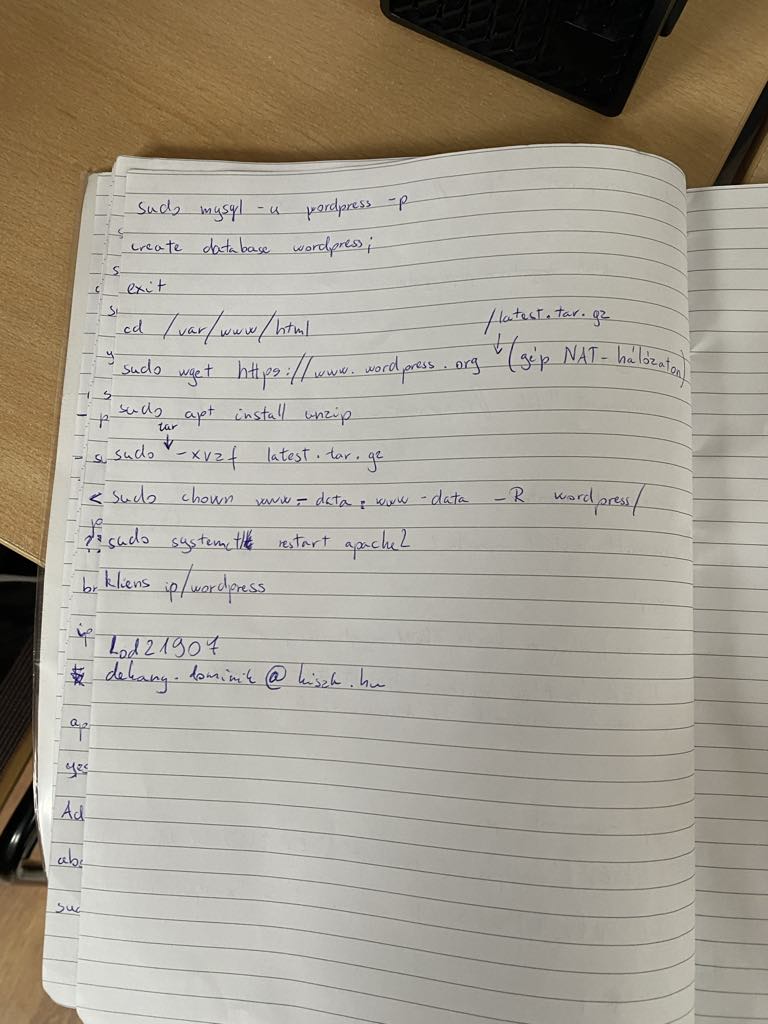 sudo mysql -u wordpress -p
create database wordpress;
exit
cd /var/www/html
/latest.tar.gz
sudo wget https://www.wordpress.org (gép NAT-hálózaton)
sudo apt install unzip
tar
sudo -xvzf latest.tar.gz
sudo chown www-data:www-data -R wordpress/
sudo systemctl restart apache2
kliens ip/wordpress
Lod21907
dekany.dominik@kiszk.hu
ip
ap
yes
Ad
abc